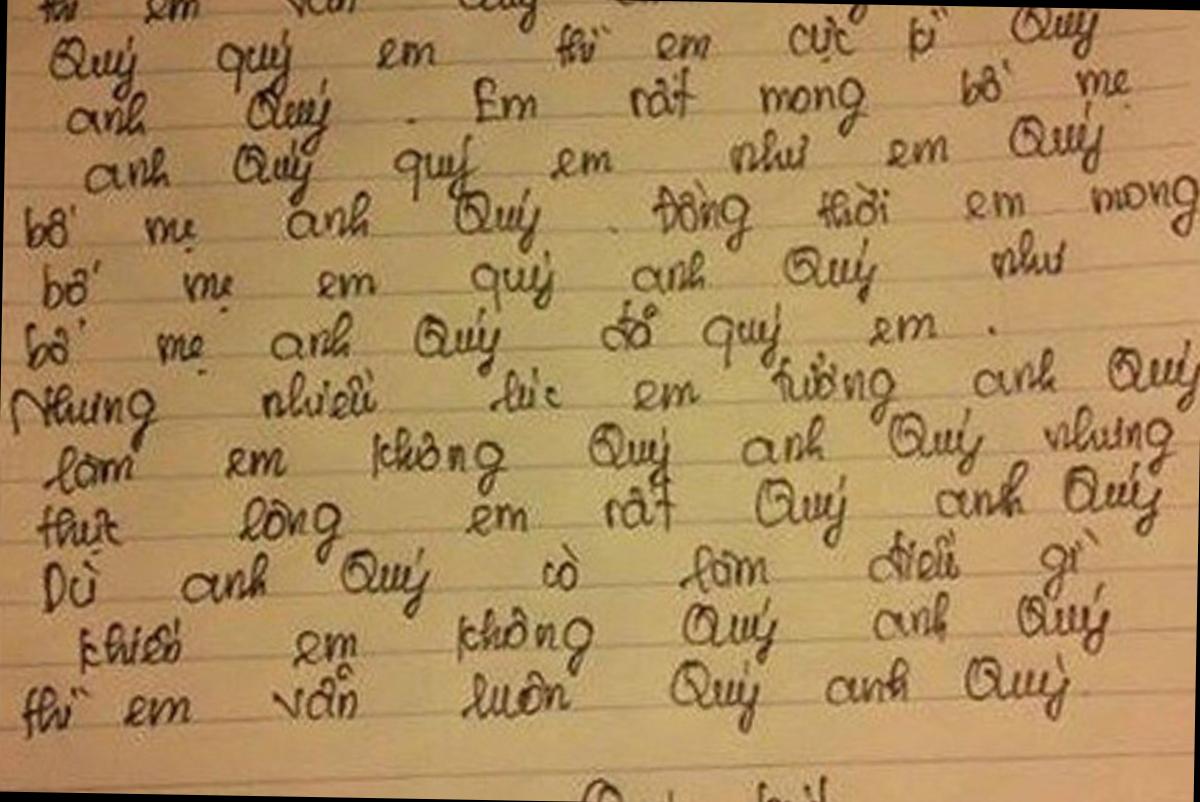 thì em vẫn
Quý quý em thì em cực kì Quý
anh Quý. Em rất mong bố mẹ
anh Quý quý em như em Quý
bố mẹ anh Quý. Đồng thời em mong
bố mẹ em quý anh Quý như
bố mẹ anh Quý đã quý em.
Nhưng nhiều lúc em tưởng anh Quý
làm em không Quý anh Quý nhưng
thực lòng em rất Quý anh Quý
Dù anh Quý có làm điều gì
khiến em không Quý anh Quý
thì em vẫn luôn Quý anh Quý